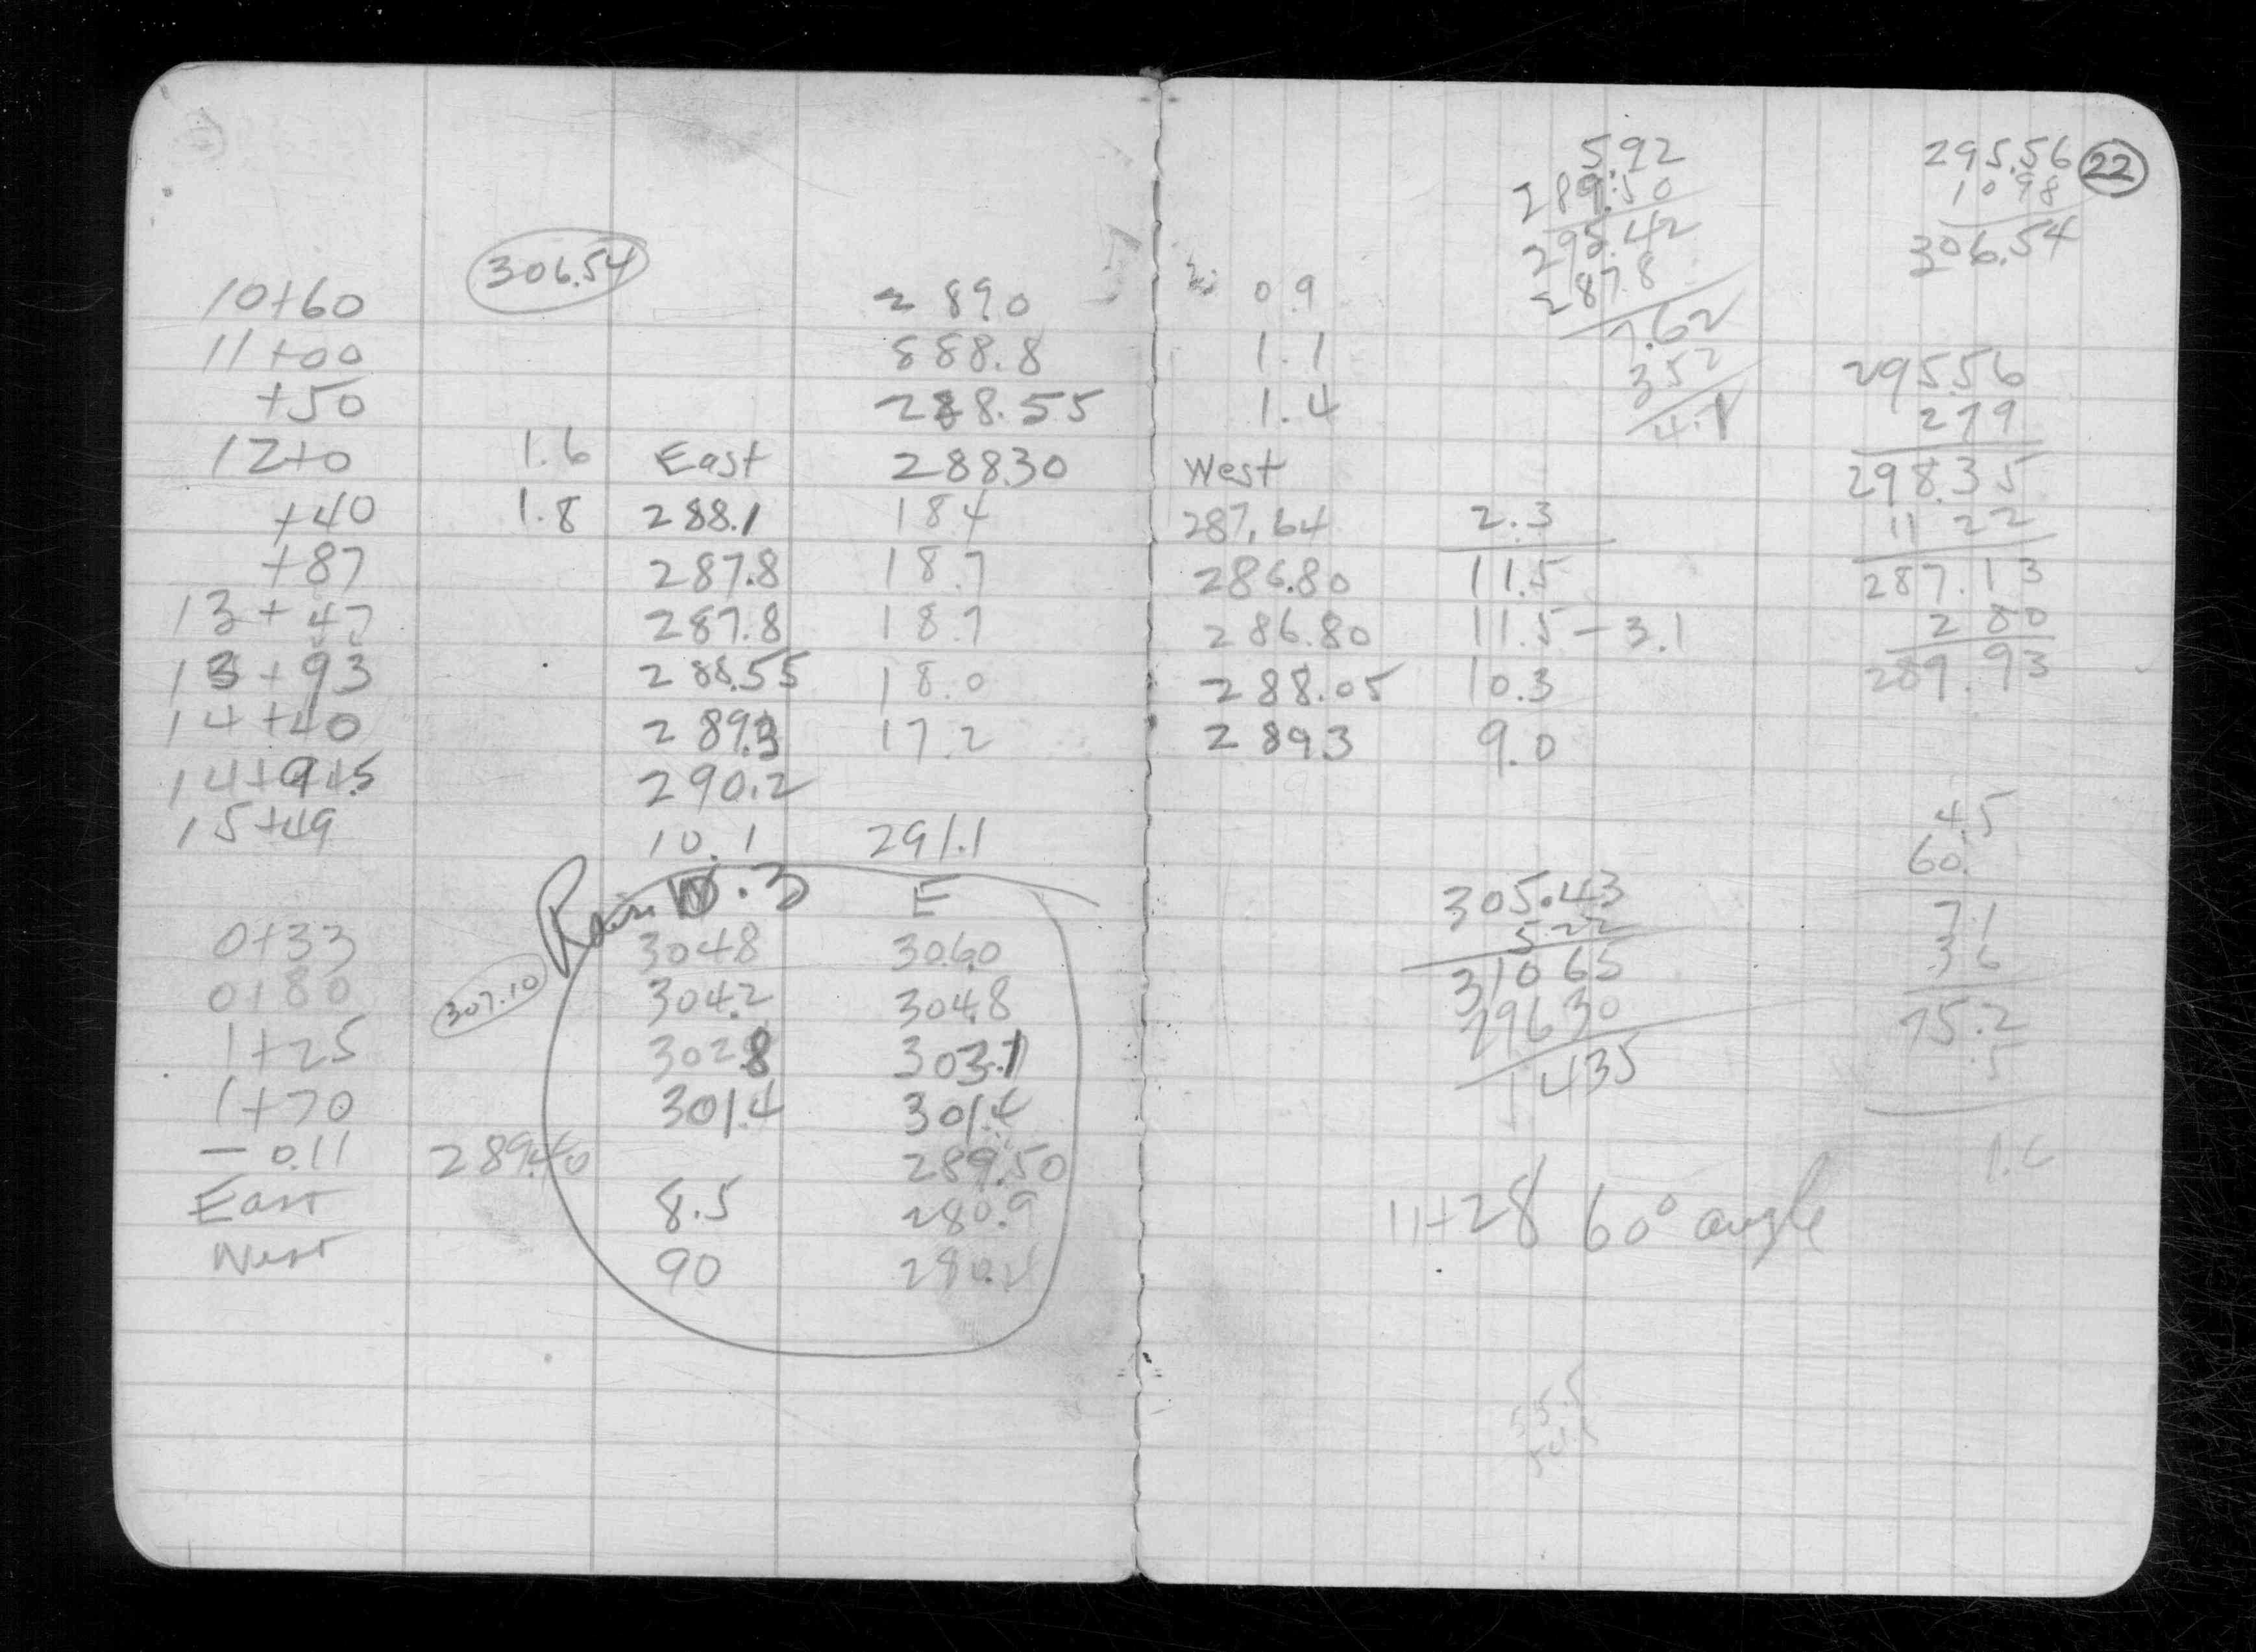 306.54
10+60 289.0
11+00 888.8
+50 288.55
12+0 1.6 East 288.30
+40 1.8 288.1 18.4
+87 287.8 18.7
13+47 287.8 18.7
13+93 288.55 18.0
14+40 289.3 17.2
14+94.5 290.2
15+49 10.1 291.1
Raise W .3 E
0+33 304.8 306.0
0+80 307.10 304.2 304.8
1+25 302.8 303.1
1+70 301.4 301.4
- 0.11 289.40 289.50
East 8.5 280.9
West 90 280.4
22
0.9
1.1
1.4
West
287.64 2.3
286.80 11.5
286.80 11.5 - 3.1
288.05 10.3
289.3 9.0
5.92
289.50
295.42
287.8
7.62
3.52
4.1
295.56
10 98
306.54
295.56
2 79
298.35
11 22
287.13
2 80
289.93
305.43
5.22
310 65
296 30
14 35
4.5
60.
7.1
3 6
75.2
.5
11+28 60° angle